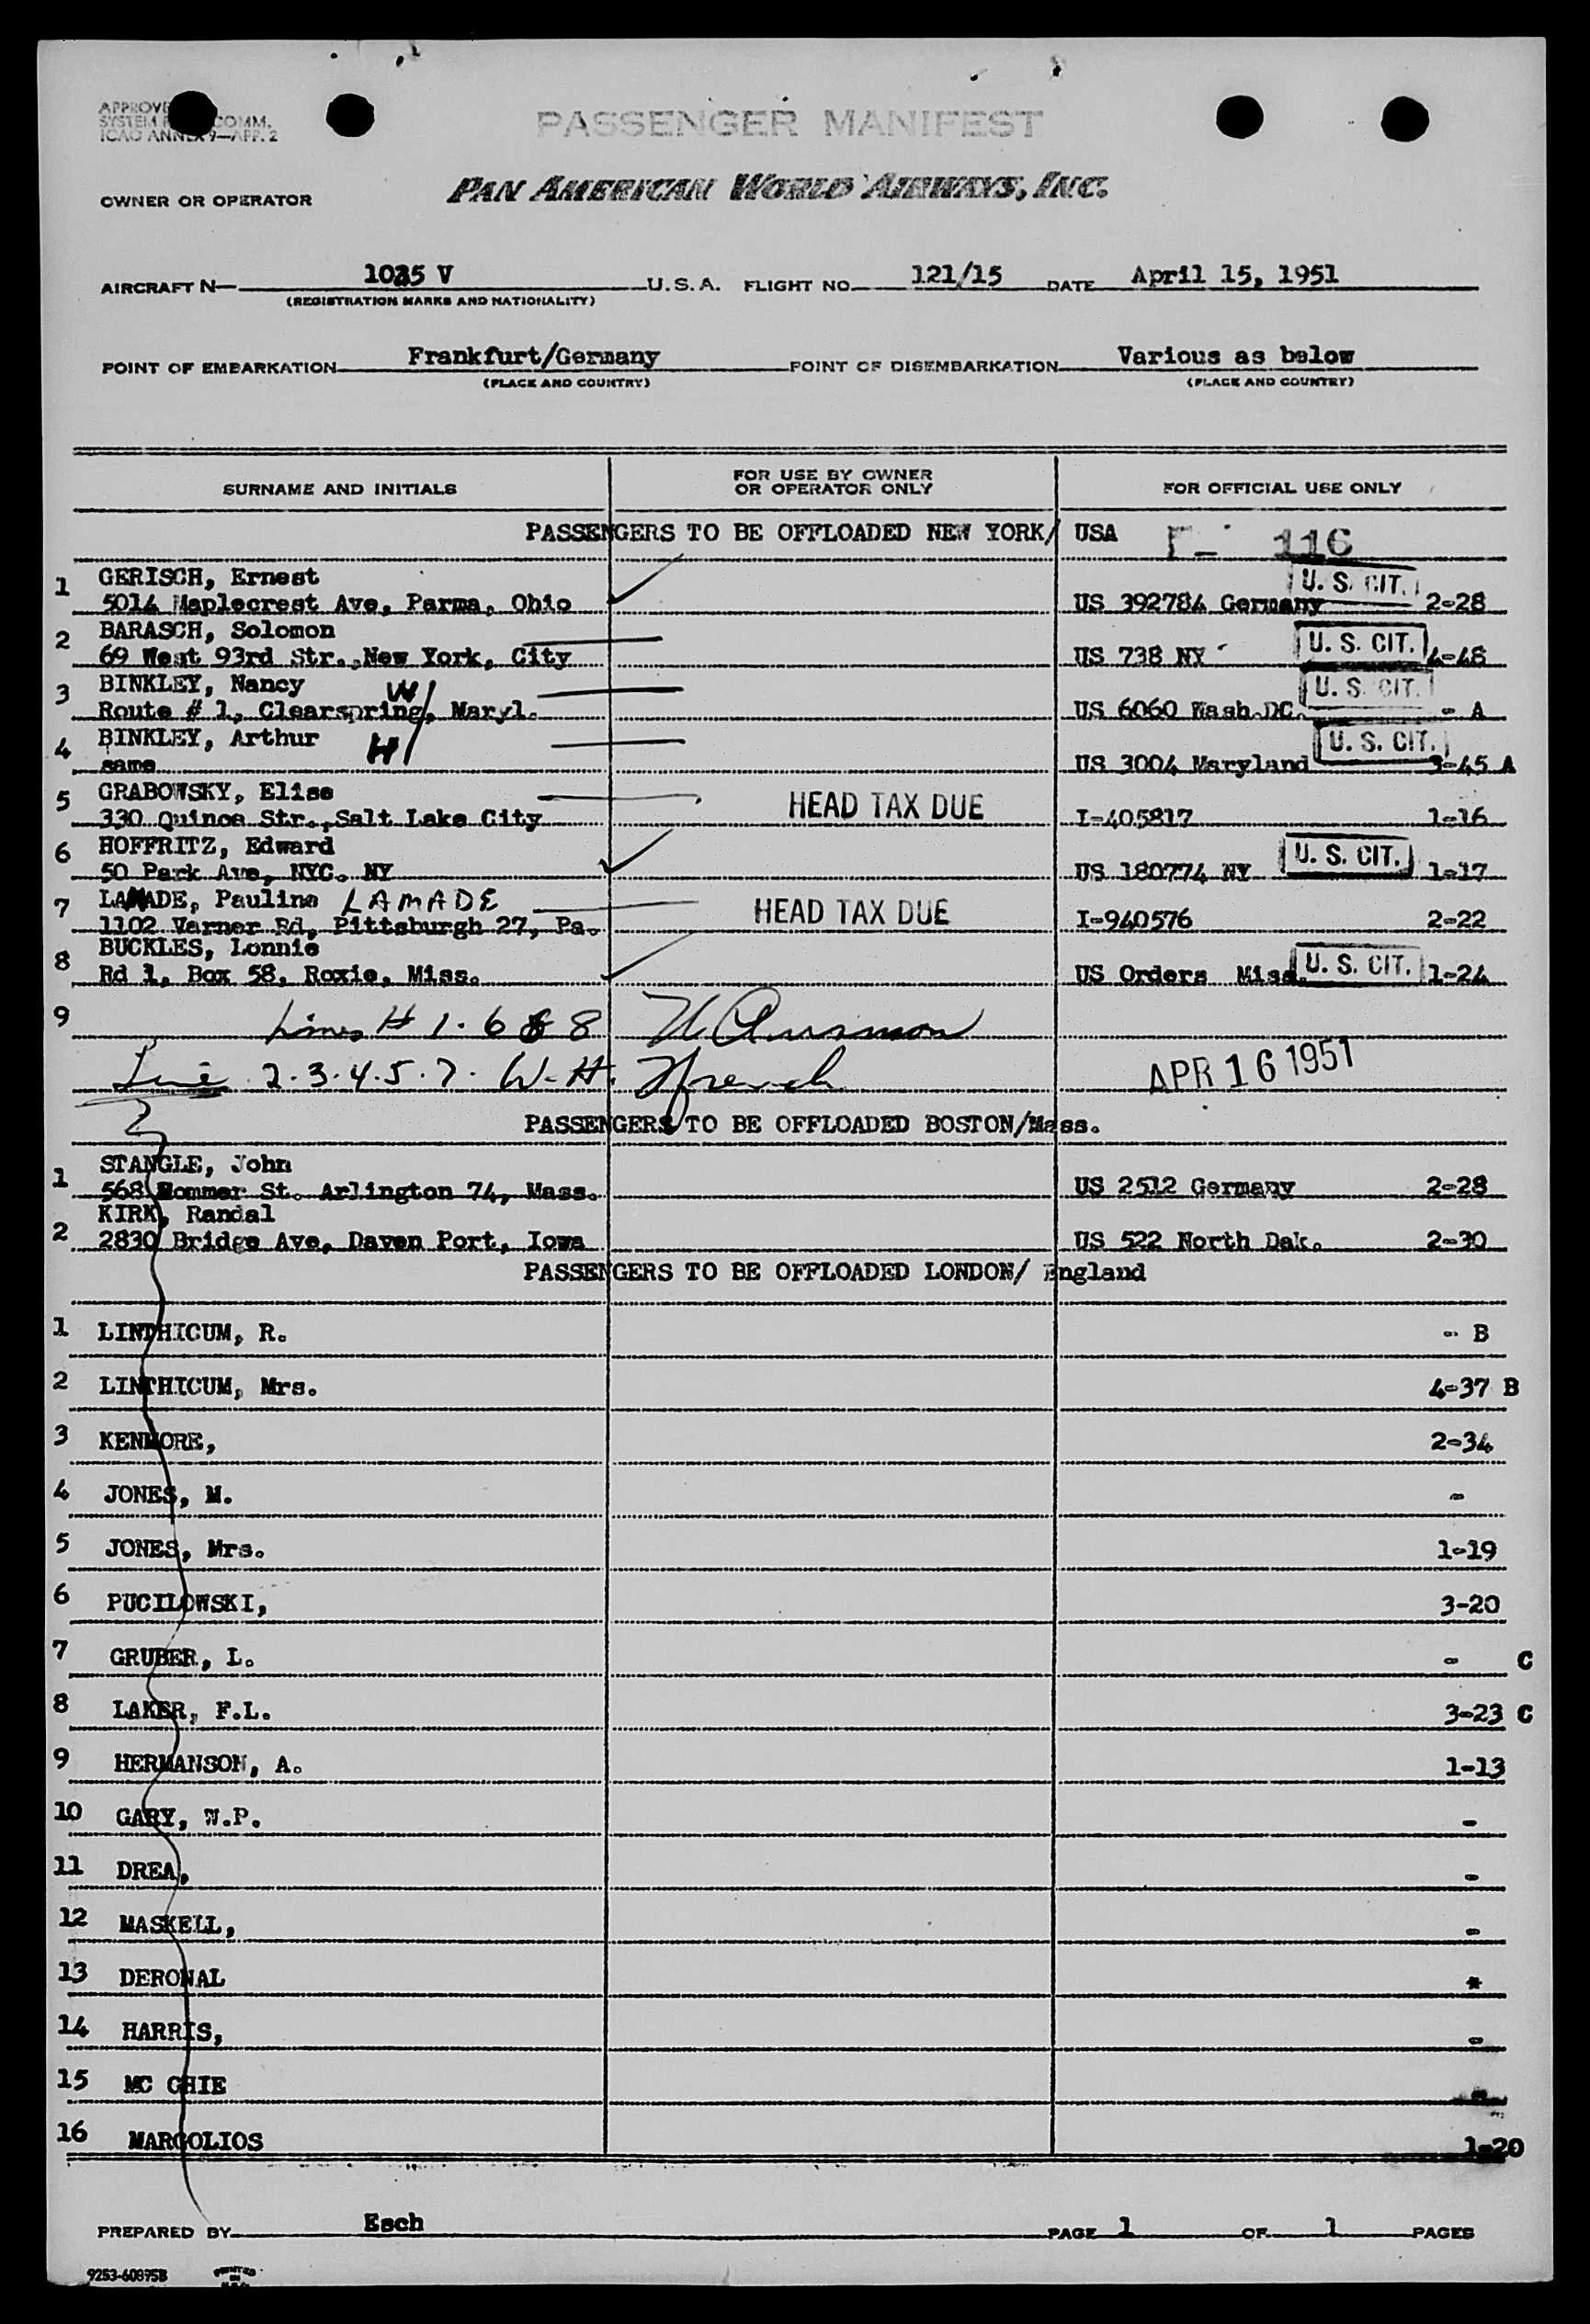 PASSENGER MANIFEST
ICAO ANNEX 9—APP. 2
OWNER OR OPERATOR PAN AMERICAN WORLD AIRWAYS, INC.
AIRCRAFT N— V U. S. A. FLIGHT NO. 121/15 DATE April 15, 1951
(REGISTRATION MARKS AND NATIONALITY)
POINT OF EMBARKATION Frankfurt/Germany POINT OF DISEMBARKATION Various as below
(PLACE AND COUNTRY) (PLACE AND COUNTRY)
SURNAME AND INITIALS FOR USE BY OWNER OR OPERATOR ONLY FOR OFFICIAL USE ONLY
PASSENGERS TO BE OFFLOADED NEW YORK/ USA 116
1 GERISCH, Ernest U. S. CIT.
5014 Maplecrest Ave, Parma, Ohio US 392784 Germany 2-28
2 BARASCH, Solomon U. S. CIT.
69 West 93rd Str., New York, City US 738 NY 4-48
3 BINKLEY, Nancy W U. S. CIT.
Route # 1, Clearspring, Maryl. US 6060 Wash.DC. - A
4 BINKLEY, Arthur H U. S. CIT.
same US 3004 Maryland 3-45 A
5 GRABOWSKY, Elise HEAD TAX DUE
330 Quince Str., Salt Lake City I-405817 1-16
6 HOFFRITZ, Edward U. S. CIT.
50 Park Ave, NYC. NY US 180774 NY 1-17
7 LAMADE, Pauline LAMADE HEAD TAX DUE
1102 Varner Rd, Pittsburgh 27, Pa. I-940576 2-22
8 BUCKLES, Lonnie U. S. CIT.
Rd 1, Box 58, Roxie, Miss. US Orders Miss. 1-24
9 Lines # 1. 6 & 8
Line 2.3.4.5.7. W. H. French APR 16 1951
PASSENGERS TO BE OFFLOADED BOSTON/Mass.
1 STANGLE, John
568 St. Arlington 74, Mass. US 2512 Germany 2-28
2 KIRK, Randal
2830 Bridge Ave, Daven Port, Iowa US 522 North Dak. 2-30
PASSENGERS TO BE OFFLOADED LONDON/ England
1 LINTHICUM, R. - B
2 LINTHICUM, Mrs. 4-37 B
3 KENMORE, 2-34
4 JONES, M. -
5 JONES, Mrs. 1-19
6 PUCILOWSKI, 3-20
7 GRUBER, L. - C
8 LAKER, F.L. 3-23 C
9 HERMANSON, A. 1-13
10 GARY, W.P. -
11 DREA, -
12 MASKELL, -
13 DERONAL
14 HARRIS, -
15 MC GHIE -
16 MARGOLIOS 1-20
PREPARED BY Esch PAGE 1 OF 1 PAGES
9253-60895B